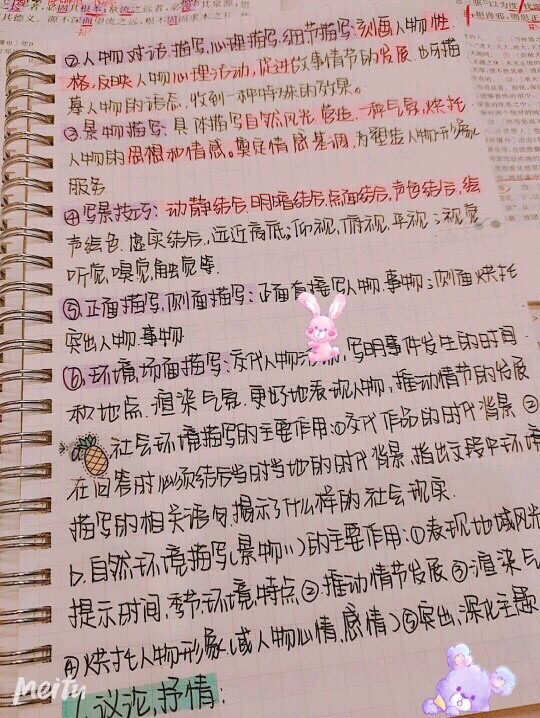 ②人物对话,描写,心理描写,细节描写,刻画人物性
格,反映人物心理活动,促进故事情节的发展.也可描
摹人物的语态,收到一种特殊的效果。
③景物描写:具体描写自然风光,营造一种气氛,烘托
人物的思想和情感。奠定情感基调,为塑造人物形象
服务
④写景技巧:动静结合.明暗结合.点面结合,声色结合,绘
声绘色.虚实结合,远近高低;仰视,俯视,平视;视觉
听觉,嗅觉,触觉等.
⑤.正面描写,侧面描写:正面直接写人物.事物;侧面烘托
突出人物.事物
⑥,环境,场面描写:交代人物活动,写明事件发生的时间
和地点.渲染气氛.更好地表现人物,推动情节的发展
社会环境描写的主要作用:①交代作品的时代背景②
在回答时必须结合当时当地的时代背景,指出文段中环境
描写的相关语句,揭示了什么样的社会现实.
b.自然环境描写(景物)的主要作用:①表现地域风光
提示时间,季节,环境特点②推动情节发展③渲染气
④烘托人物形象(或人物心情,感情)⑤突出,深化主题
7.议论,抒情:
Meitu